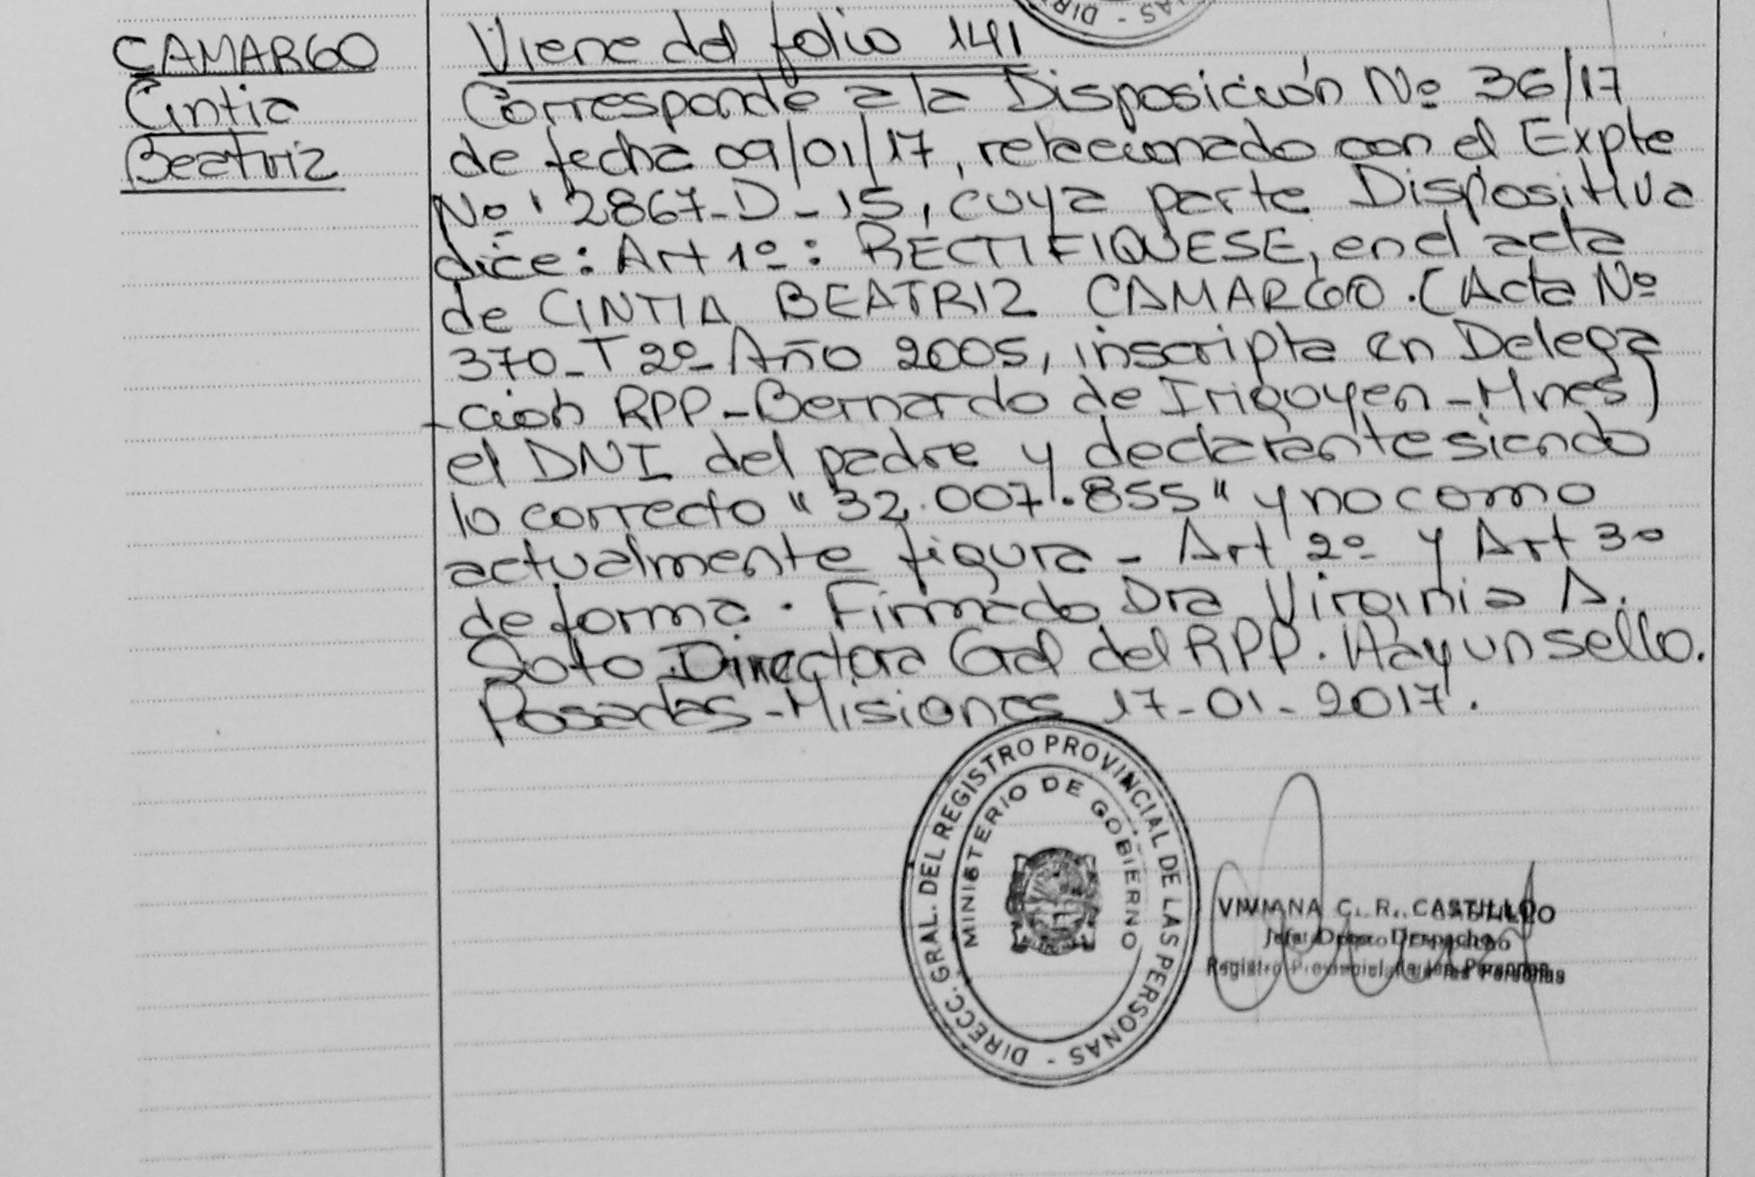 DIR - AS
CAMARGO
Cintia
Beatriz
Viene del folio 141
Corresponde a la Disposición Nº 36/17
de fecha 09/01/17, relacionado con el Expte
Nº 2867-D-15, cuya parte Dispositiva
dice: Art 1º: RECTIFIQUESE, en el acta
de CINTIA BEATRIZ CAMARGO. (Acta Nº
370-T2º-Año 2005, inscripta en Delega
-ción RPP-Bernardo de Irigoyen-Mnes)
el DNI del padre y declarante siendo
lo correcto "32.007.855" y no como
actualmente figura - Art 2º y Art 3º
de forma. Firmado Dra Virginia A.
Soto Directora Gral del RPP. Hay un sello.
Posadas-Misiones 17-01-2017.
DIRECC. GRAL. DEL REGISTRO PROVINCIAL DE LAS PERSONAS -
MINISTERIO DE GOBIERNO
VIVIANA C. R. CASTILLO
Despacho
Registro Provincial de las Personas